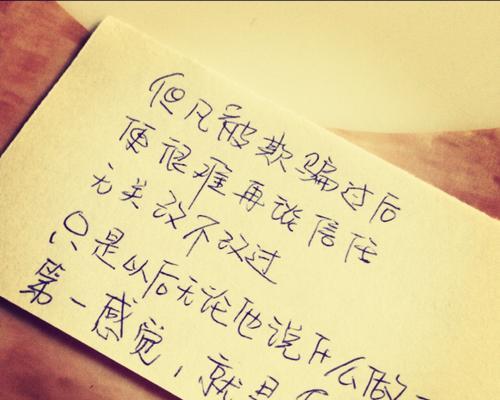 但凡被欺骗过后
便很难再谈信任
无关议不改过
只是以后无论他说什么做
第一感觉，就是